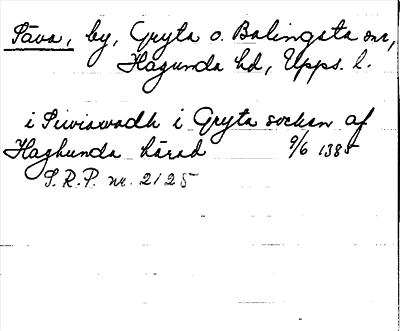 Tava, by, Gryta o. Balingsta snr,
Hagunda hd, Upps. l.
i Tiwiswadh i Gryta sockan af
Haghunda härad 9/6 1385
S.R.P. nr. 2125